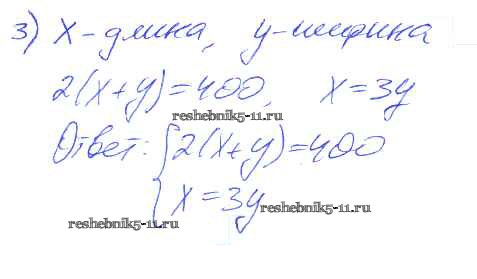 3) x-длина, y-ширина
2(x+y)=400, x=3y
reshebnik5-11.ru
Ответ: {2(x+y)=400
x=3y
reshebnik5-11.ru reshebnik5-11.ru